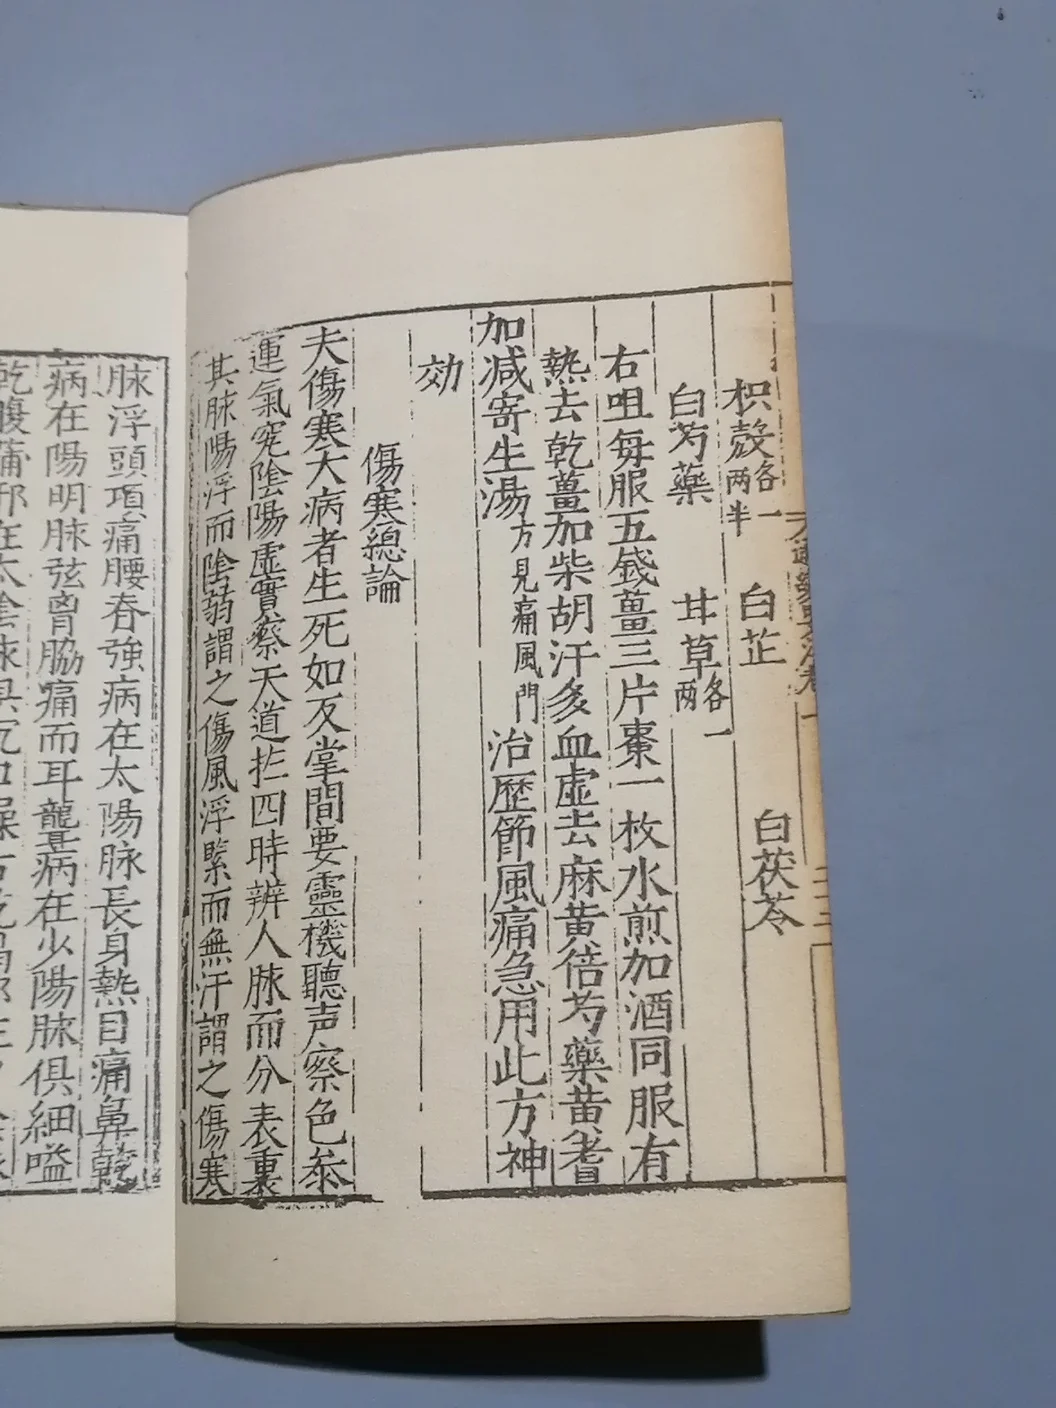 枳殼各一兩半　白芷　白茯苓
白芍藥　甘草各一兩
右咀每服五錢薑三片棗一枚水煎加酒同服有
熱去乾薑加柴胡汗多血虛去麻黃倍芍藥黃耆
加减寄生湯方見痛風門治歷節風痛急用此方神
効
傷寒總論
夫傷寒大病者生死如反掌間要靈機聽声察色叅
運氣䆒陰陽虛實察天道扵四時辨人脉而分表裏
其脉陽浮而陰弱謂之傷風浮緊而無汗謂之傷寒
脉浮頭項痛腰脊強病在太陽脉長身熱目痛鼻乾
病在陽明脉弦胷脇痛而耳聾病在少陽脉俱細嗌
乾腹滿邪在太陰脉俱沉口燥舌乾